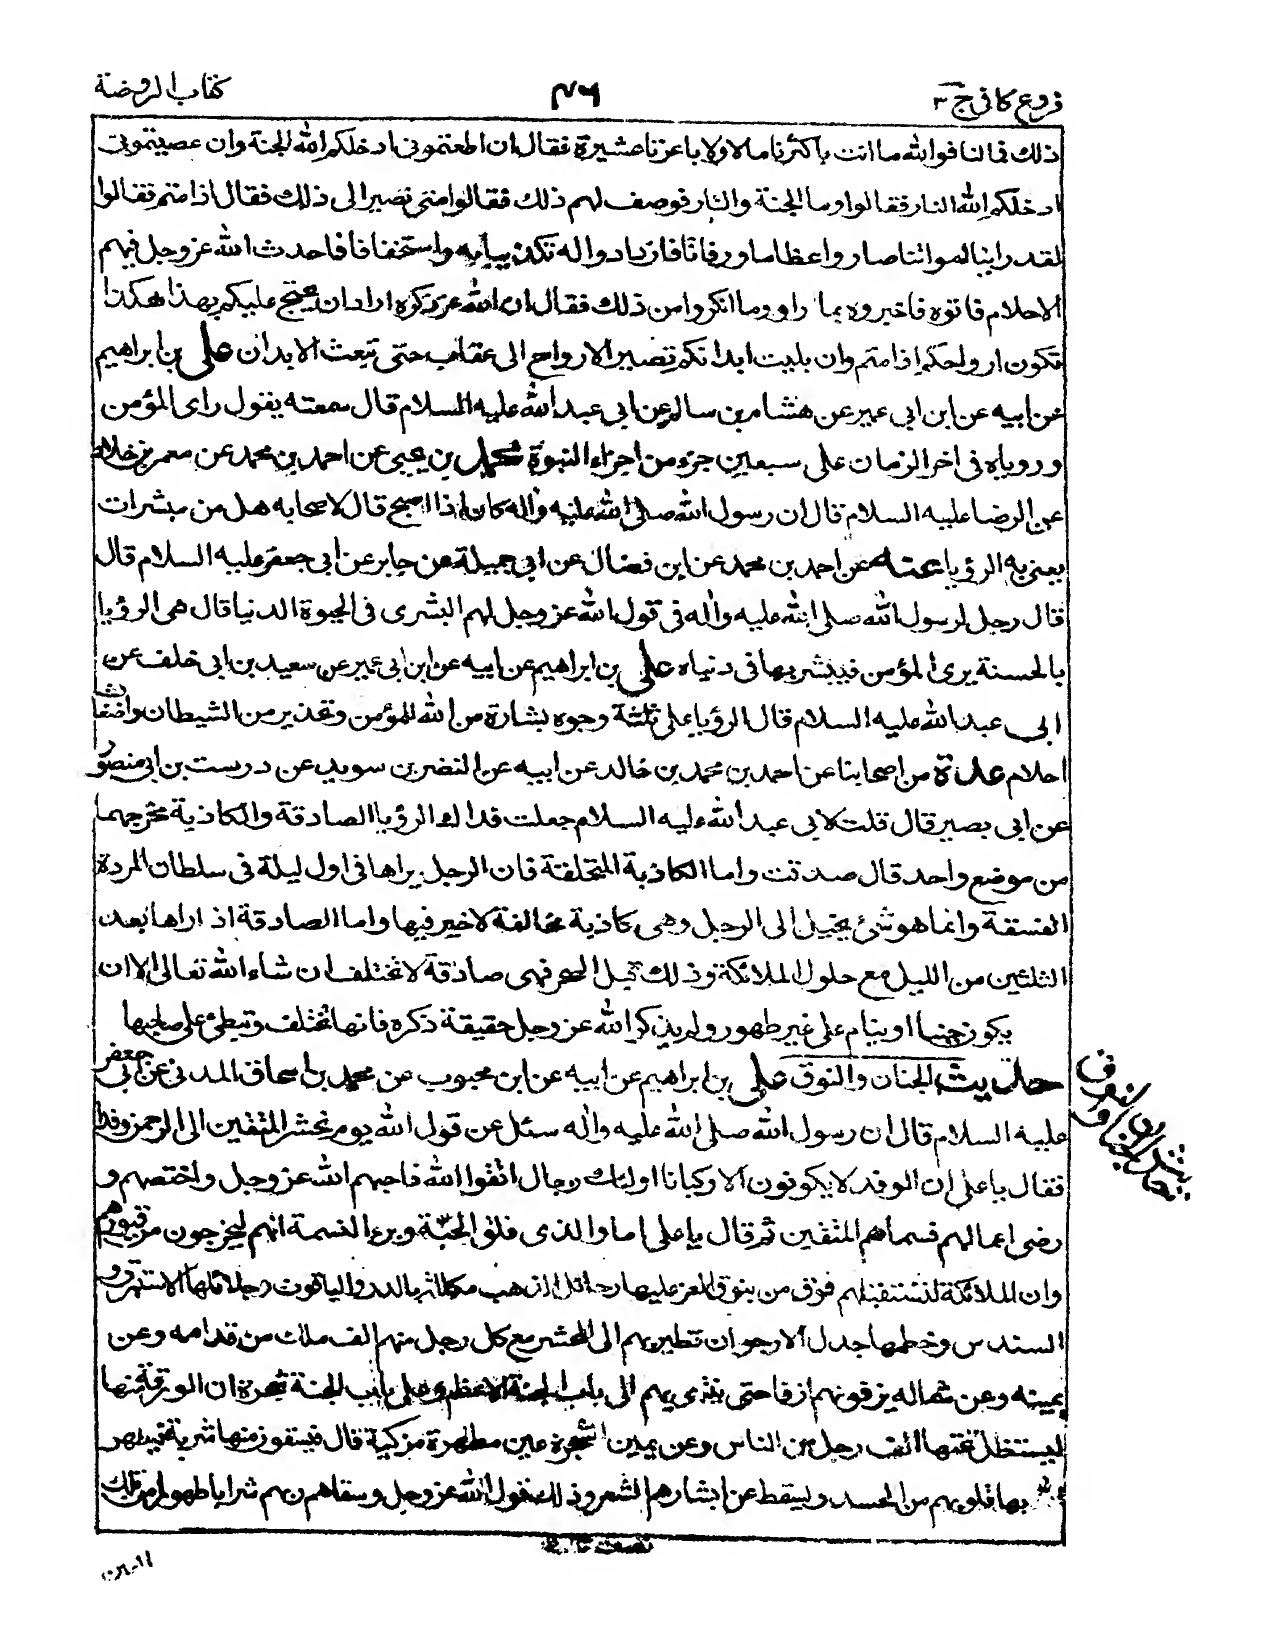 فروع كافى ج ٣
٤٦
كتاب الروضة
ذلك فمالنا فوالله ما انت باكثرنا مالا ولا باعزنا عشيرة فقال ان اطعتمونى ادخلكم الله الجنة وان عصيتمونى
ادخلكم الله النار فقالوا وما الجنة والنار فوصف لهم ذلك فقالوا متى نصير الى ذلك فقال اذا متم فقالوا
لقد راينا امواتنا صاروا عظاما ورفاتا فازدادوا له تكذيبا وبه واستخفافا فاحدث الله عز وجل فيهم
الاحلام فاتوه فاخبروه بما راوا وما انكروا من ذلك فقال ان الله عز ذكره اراد ان يحتج عليكم بهذا هكذا
تكون ارواحكم اذا متم وان بليت ابدانكم تصير الارواح الى عقاب حتى تبعث الابدان على بن ابراهيم
عن ابيه عن ابن ابى عمير عن هشام بن سالم عن ابى عبد الله عليه السلام قال سمعته يقول راى المؤمن
ورؤياه فى اخر الزمان على سبعين جزء من اجزاء النبوة محمد بن يحيى عن احمد بن محمد عن معمر بن خلاد
عن الرضا عليه السلام قال ان رسول الله صلى الله عليه واله كان اذا اصبح قال لاصحابه هل من مبشرات
يعنى به الرؤيا عنه عن احمد بن محمد عن ابن فضال عن ابى جميلة عن جابر عن ابى جعفر عليه السلام قال
قال رجل لرسول الله صلى الله عليه واله فى قول الله عز وجل لهم البشرى فى الحيوة الدنيا قال هى الرؤيا
بالحسنة يرى المؤمن فيبشر بها فى دنياه على بن ابراهيم عن ابيه عن ابن ابى عمير عن سعيد بن ابى خلف عن
ابى عبد الله عليه السلام قال الرؤيا على ثلثة وجوه بشارة من الله للمؤمن وتحذير من الشيطان واضغاث
احلام عدة من اصحابنا عن احمد بن محمد بن خالد عن ابيه عن النضر بن سويد عن درست بن ابى منصور
عن ابى بصير قال قلت لابى عبد الله عليه السلام جعلت فداك الرؤيا الصادقة والكاذبة مخرجهما
من موضع واحد قال صدقت واما الكاذبة المختلفة فان الرجل يراها فى اول ليلة فى سلطان المردة
الفسقة وانما هو شئ يخيل الى الرجل وهى كاذبة مخالفة لا خير فيها واما الصادقة اذا راها بعد
الثلثين من الليل مع حلول الملائكة وذلك قبل السحر فهى صادقة لا تختلف ان شاء الله تعالى الا ان
يكون جنبا او ينام على غير طهور ولم يذكر الله عز وجل حقيقة ذكره فانها تختلف وتبطئ على صاحبها
حديث الجنان والنوق على بن ابراهيم عن ابيه عن ابن محبوب عن محمد بن اسحاق المدنى عن ابى جعفر
عليه السلام قال ان رسول الله صلى الله عليه واله سئل عن قول الله يوم نحشر المتقين الى الرحمن وفدا
فقال يا على ان الوفد لا يكونون الا ركبانا اولئك رجال اتقوا الله فاحبهم الله عز وجل واختصهم و
رضى اعمالهم فسماهم المتقين ثم قال يا على اما والذى فلق الحبة وبرء النسمة انهم ليخرجون من قبورهم
وان الملائكة لتستقبلهم فوق من بنوق العز عليها رحائل الذهب مكللة بالدر والياقوت وجلائلها الاستبرق و
السندس وخطمها جدل الارجوان تطير بهم الى المحشر مع كل رجل منهم الف ملك من قدامه وعن
يمينه وعن شماله يزفونهم زفا حتى ينتهى بهم الى باب الجنة الاعظم وعلى باب الجنة شجرة ان الورقة منها
ليستظل تحتها الف رجل من الناس وعن يمين الشجرة عين مطهرة مزكية قال فيسقون منها شربة فيطهر
بها قلوبهم من الحسد ويسقط عن ابشارهم الشعر وذلك قول الله عز وجل وسقاهم ربهم شرابا طهورا من تلك
حديث الجنان والنوق